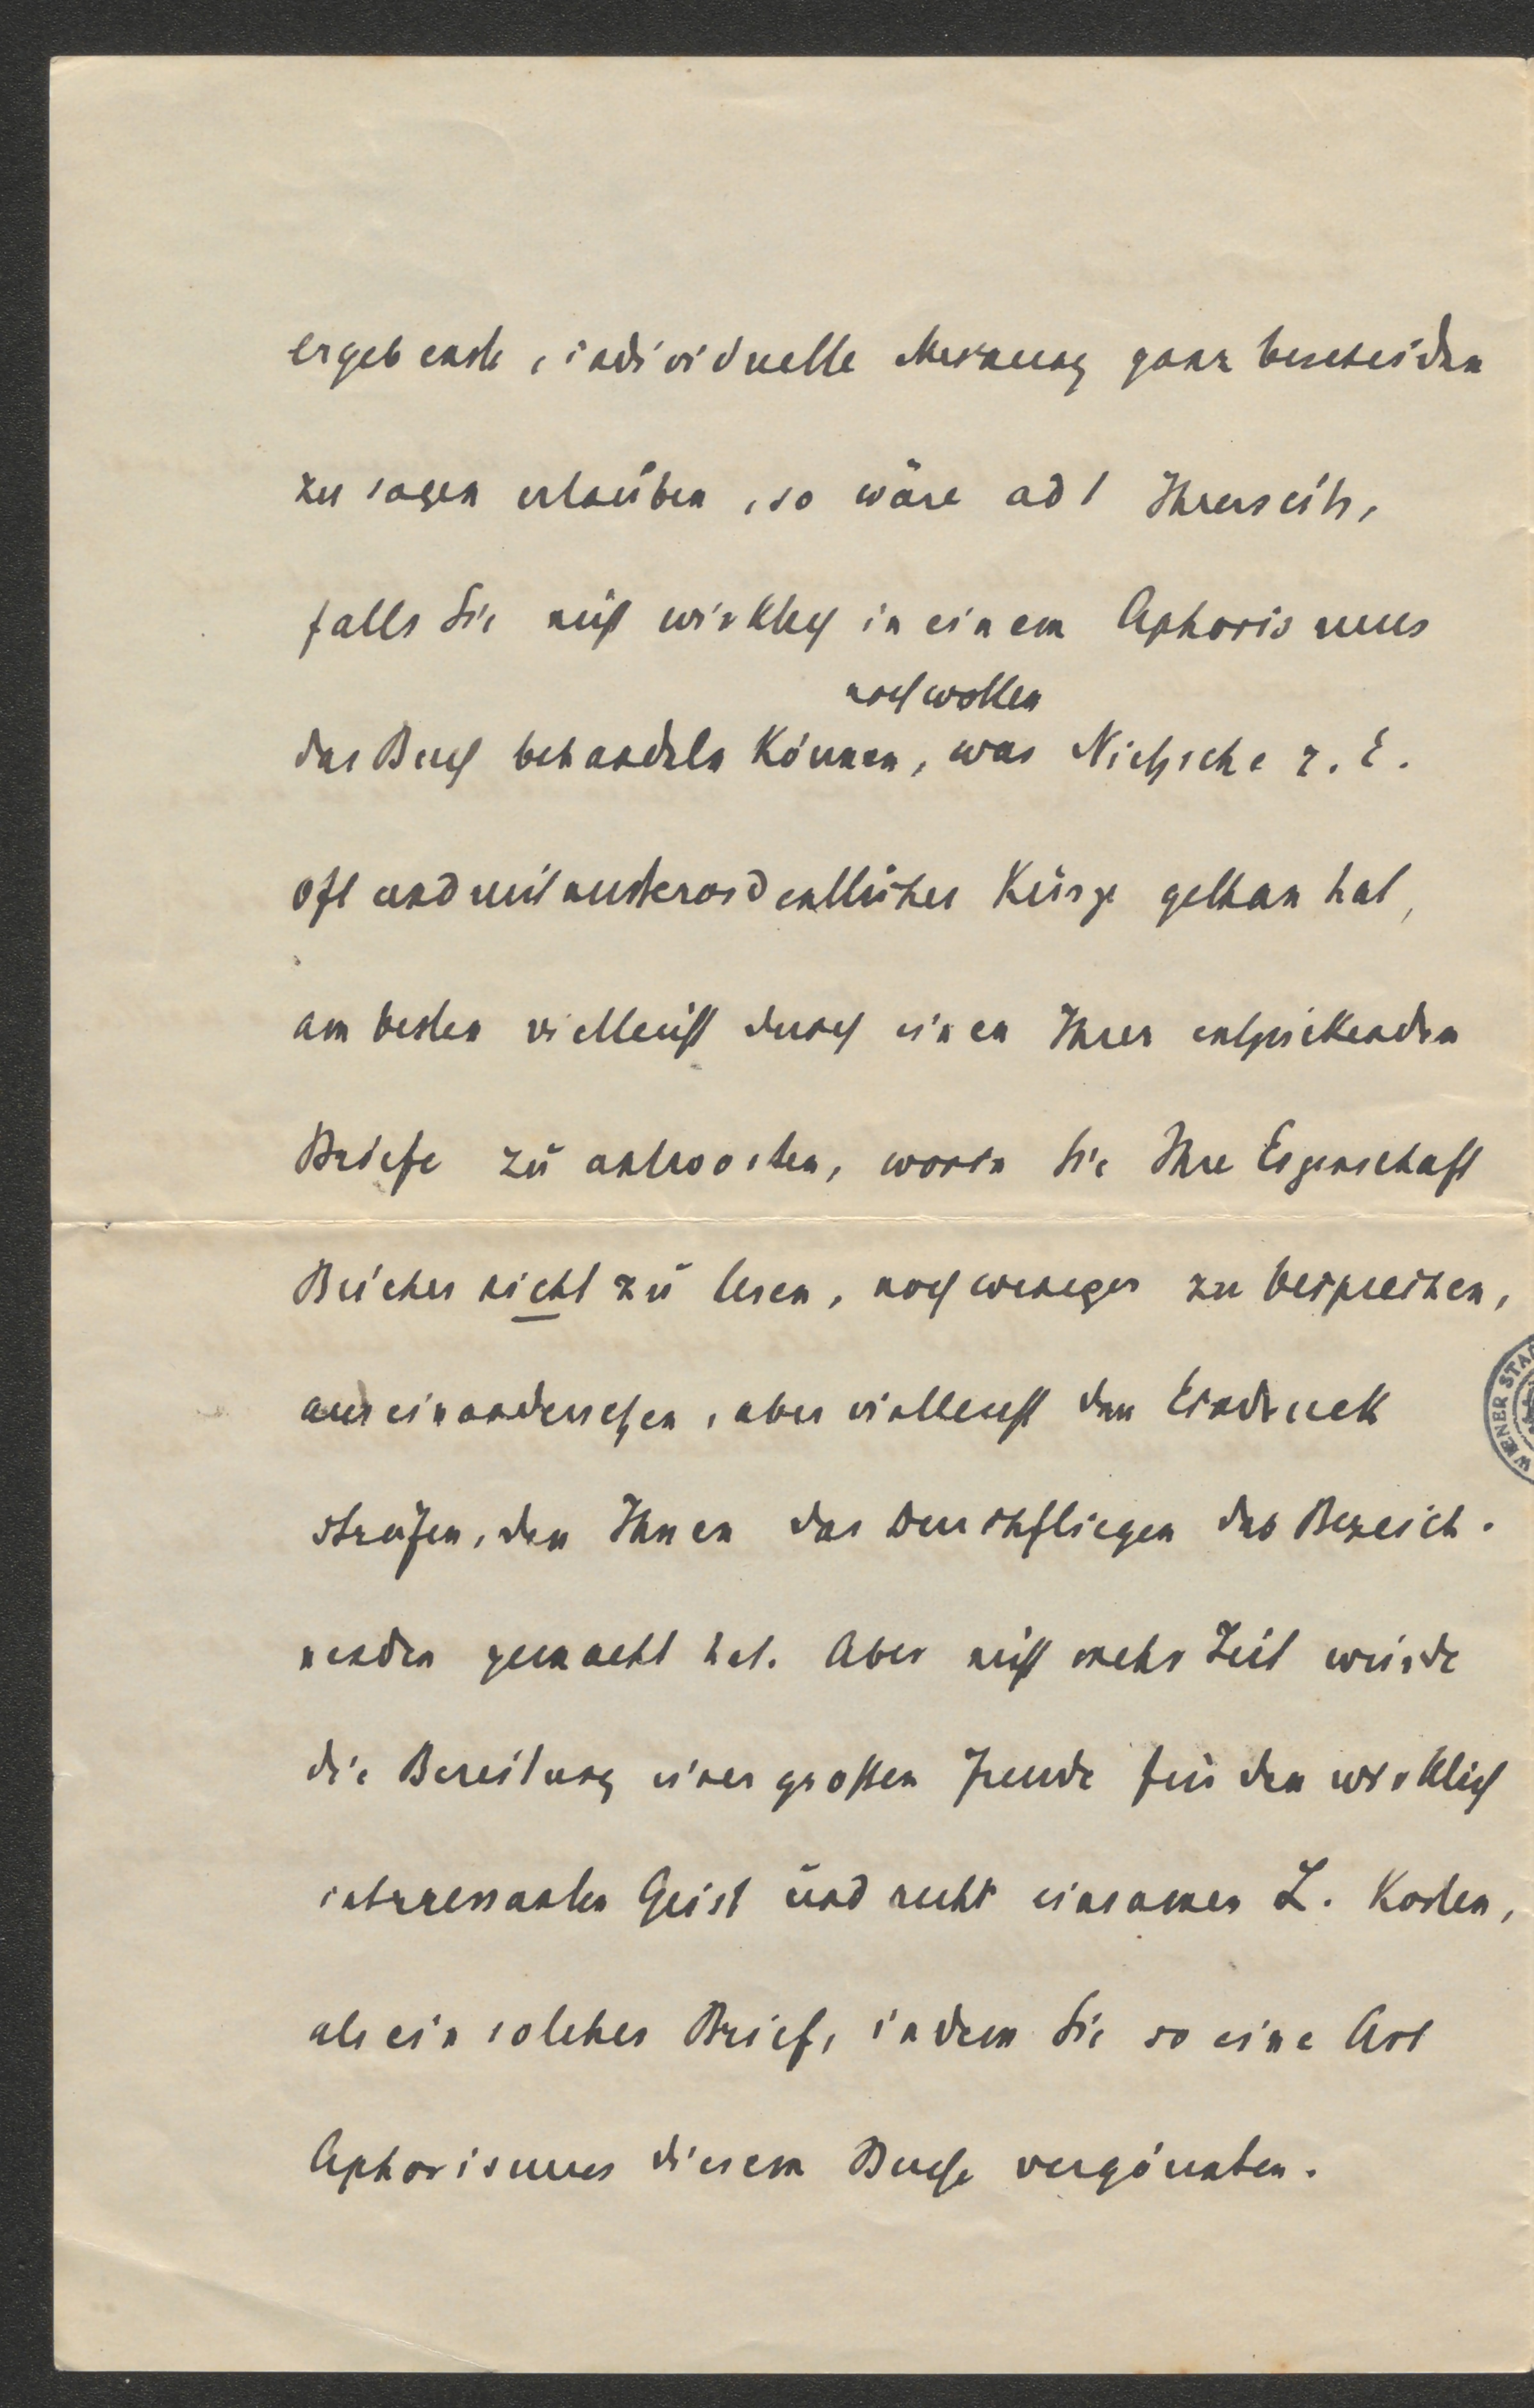 ergebenste, individuelle Meinung ganz bescheiden
zu sagen erlauben, so wäre ad 1 Ihrerseits,
falls Sie nicht wirklich in einem Aphorismus
noch wollen
das Buch behandeln können, was Nietzsche z. E.
oft und mit ausserordentlicher Kürze gethan hat,
am besten vielleicht durch einen Ihrer entzückenden
Briefe zu antworten, worin Sie Ihre Eigenschaft
Bücher nicht zu lesen, noch weniger zu besprechen,
auseinandersetzen, aber vielleicht den Eindruck
streifen, den Ihnen das Durchfliegen des Bezeich-
nenden gemacht hat. Aber nicht mehr Zeit würde
die Bereitung einer großen Freude für den wirklich
interessanten Geist und recht einsamen L. kosten,
als ein solcher Brief, indem Sie so eine Art
Aphorismus diesem Buche vergönnten.
WIENER STA